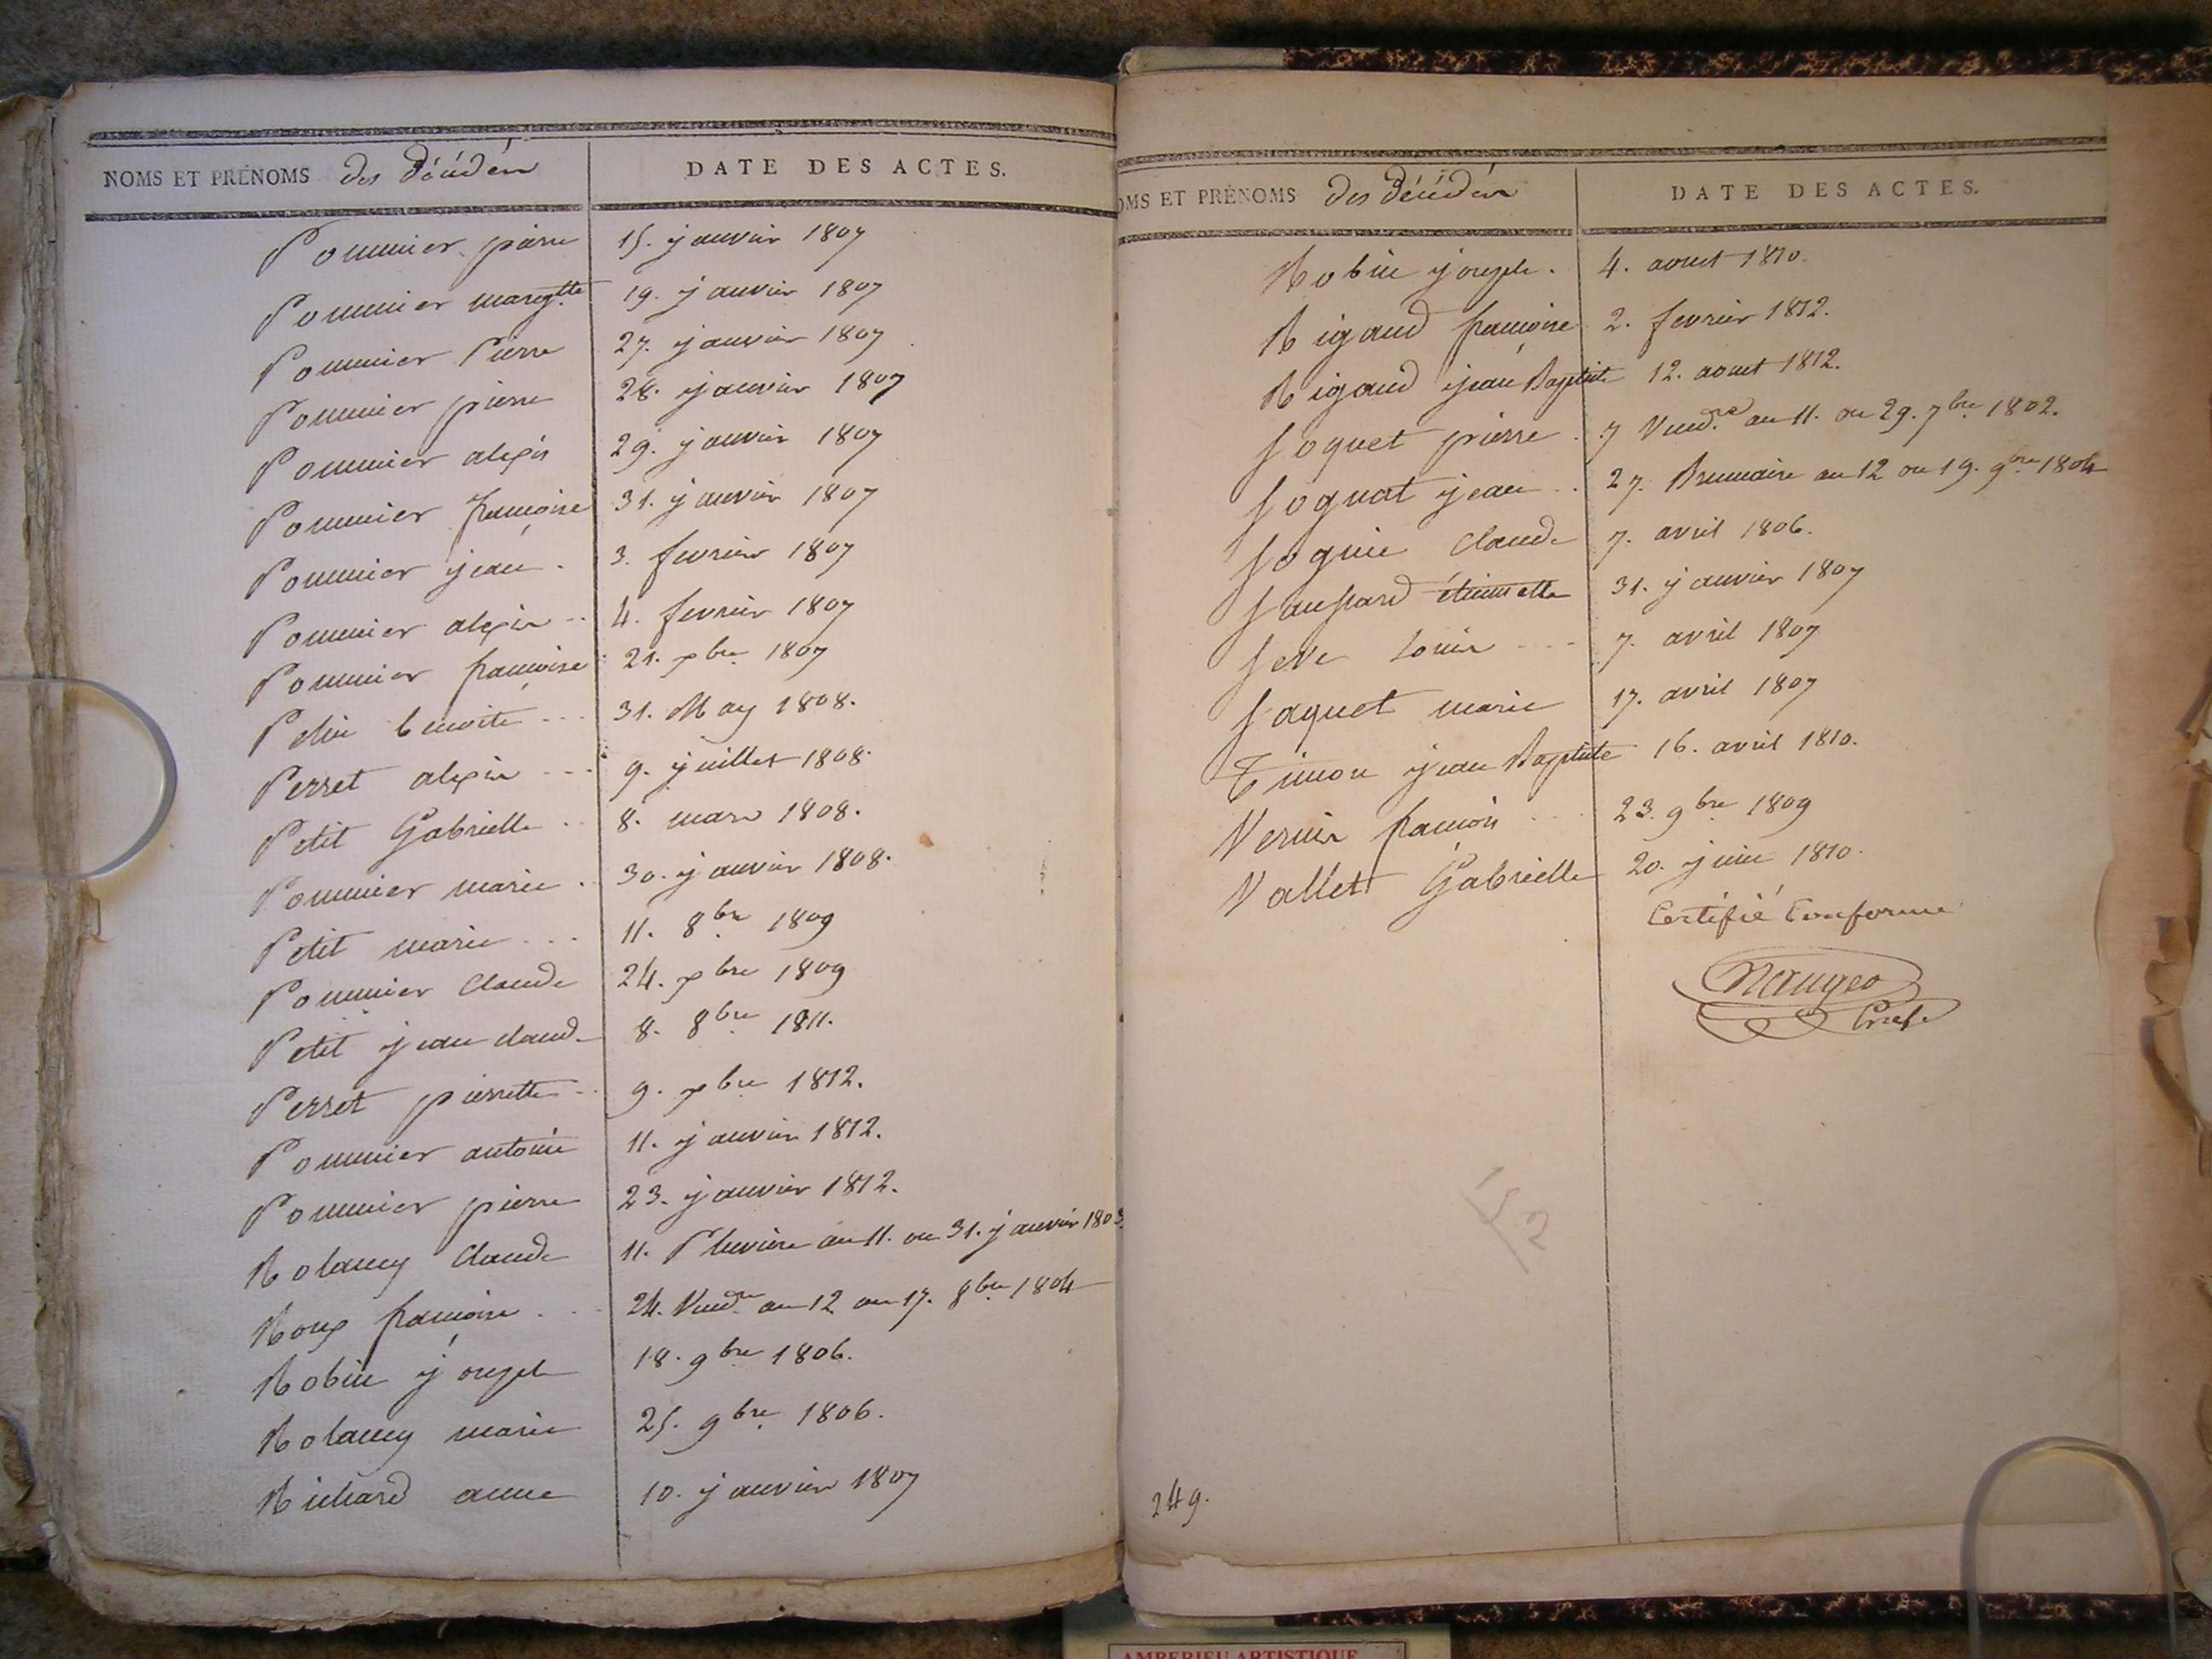 NOMS ET PRÉNOMS des Décédés
DATE DES ACTES.
Pommier pierre 15. janvier 1807
Pommier margtte 19. janvier 1807
Pommier Pierre 27. janvier 1807
Pommier pierre 28. janvier 1807
Pommier alexis 29. janvier 1807
Pommier françoise 31. janvier 1807
Pommier jean . 3. fevrier 1807
Pommier alexis .. 4. fevrier 1807
Pommier françoise 21. xbre 1807
benoite ... 31. May 1808.
Perret alexis ... 9. juillet 1808.
Petit Gabrielle .. 8. mars 1808.
Pommier marie . 30. janvier 1808.
Petit marie ... 11. 8bre 1809
Pommier Claude 24. xbre 1809
Petit jean claude 8. 8bre 1811.
Perret pierrette .. 9. xbre 1812.
Pommier antoine 11. janvier 1812.
Pommier pierre 23. janvier 1812.
Rolamy Claude 11. Pluviose an 11. ou 31. janvier 1803.
Roux françoise ... 24. Vendre an 12 ou 17. 8bre 1804
Robin joseph 18. 9bre 1806.
Rolamy marie 25. 9bre 1806.
Richard anne 10. janvier 1807
OMS ET PRÉNOMS des Décédés
DATE DES ACTES.
Robin joseph . 4. aoust 1810.
Rigaud françoise 2. fevrier 1812.
Rigaud jean Baptiste 12. aoust 1812.
Soquet pierre . 7 Vendre an 11. ou 29. 7bre 1802.
Soquet jean .. 27. Brumaire an 12 ou 19. 9bre 1804
Claude 7. avril 1806.
étiennette 31. janvier 1807
Seve Louis ... 7. avril 1807
Saquet marie 17. avril 1807
Timon jean Baptiste 16. avril 1810.
Vernis françois ... 23. 9bre 1809
Vallet Gabrielle 20. juin 1810.
Certifié Conforme
249.
AMBERIEU ARTISTIQUE